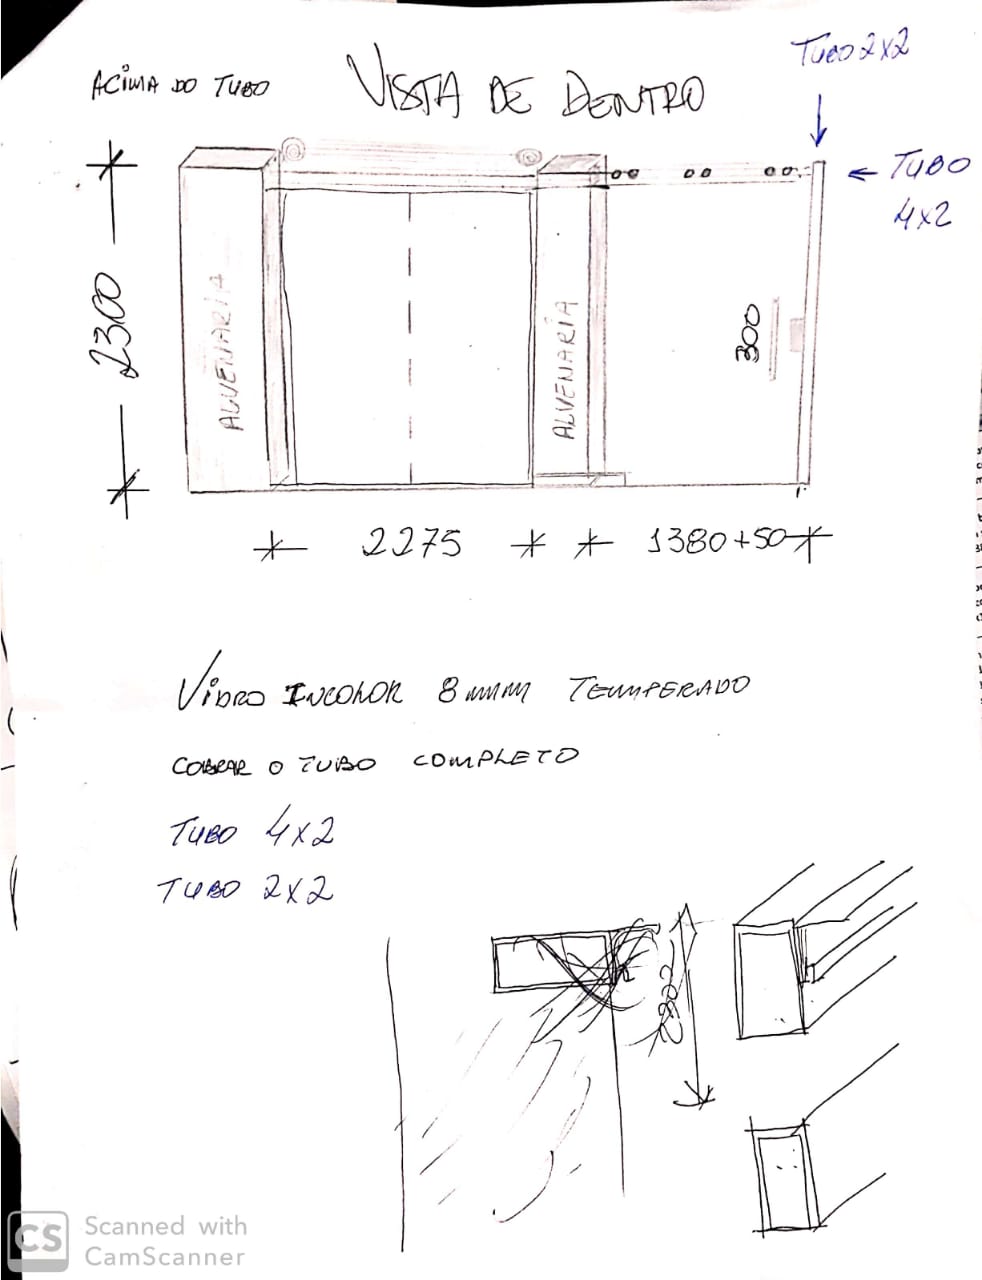 TUBO 2X2
ACIMA DO TUBO
VISTA DE DENTRO
← TUBO
4X2
2300
ALVENARIA
ALVENARIA
300
2275
1380+50
VIDRO INCOLOR 8mmm TEMPERADO
COBRAR O TUBO COMPLETO
TUBO 4X2
TUBO 2X2
CS
Scanned with
CamScanner